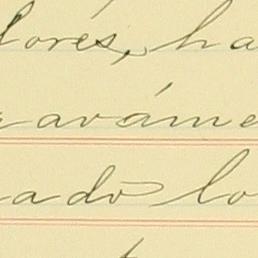 lores, ha
raváme
ado lo